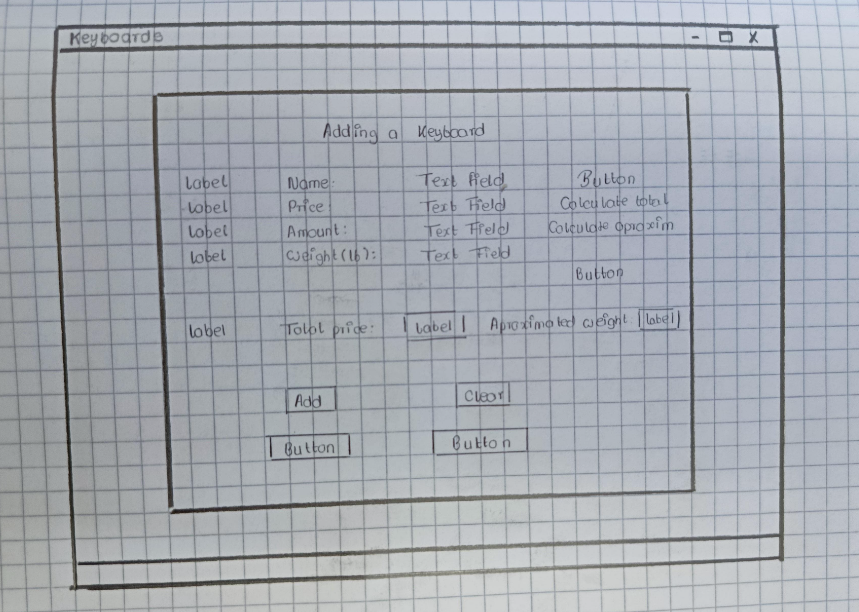 Keyboards - X
Adding a Keyboard
Label Name: Text Field Button
Label Price Text Field Calculate total
Label Amount: Text Field Calculate aproxim
Label Weight(lb): Text Field
Button
Label Total price: Label Aproximated weight label
Add Clear
Button Button